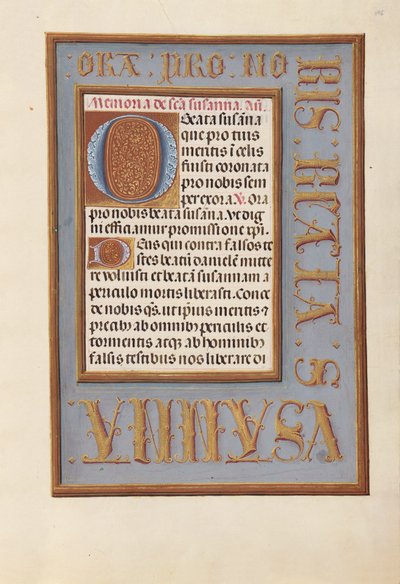 : ORA : PRO : NO
BIS : BEATA : S
VSANNA :
Memoria de scã susanna. Añ.
O Beata susãna
que pro tuis
meritis ĩ celis
fuisti coronata
pro nobis sem
per exora. V. Ora
pro nobis beata susãna. Vt dig
ni efficiamur promissione xpi.
Deus qui contra falsos te
stes beatũ danielẽ mitte
re voluisti et beatã susannam a
periculo mortis liberasti. Conce
de nobis qs. ut ip̃ius meritis et
precibꝰ ab omnibꝰ periculis et
tormentis atqꝫ ab hominibꝰ
falsis testibus nos liberare di